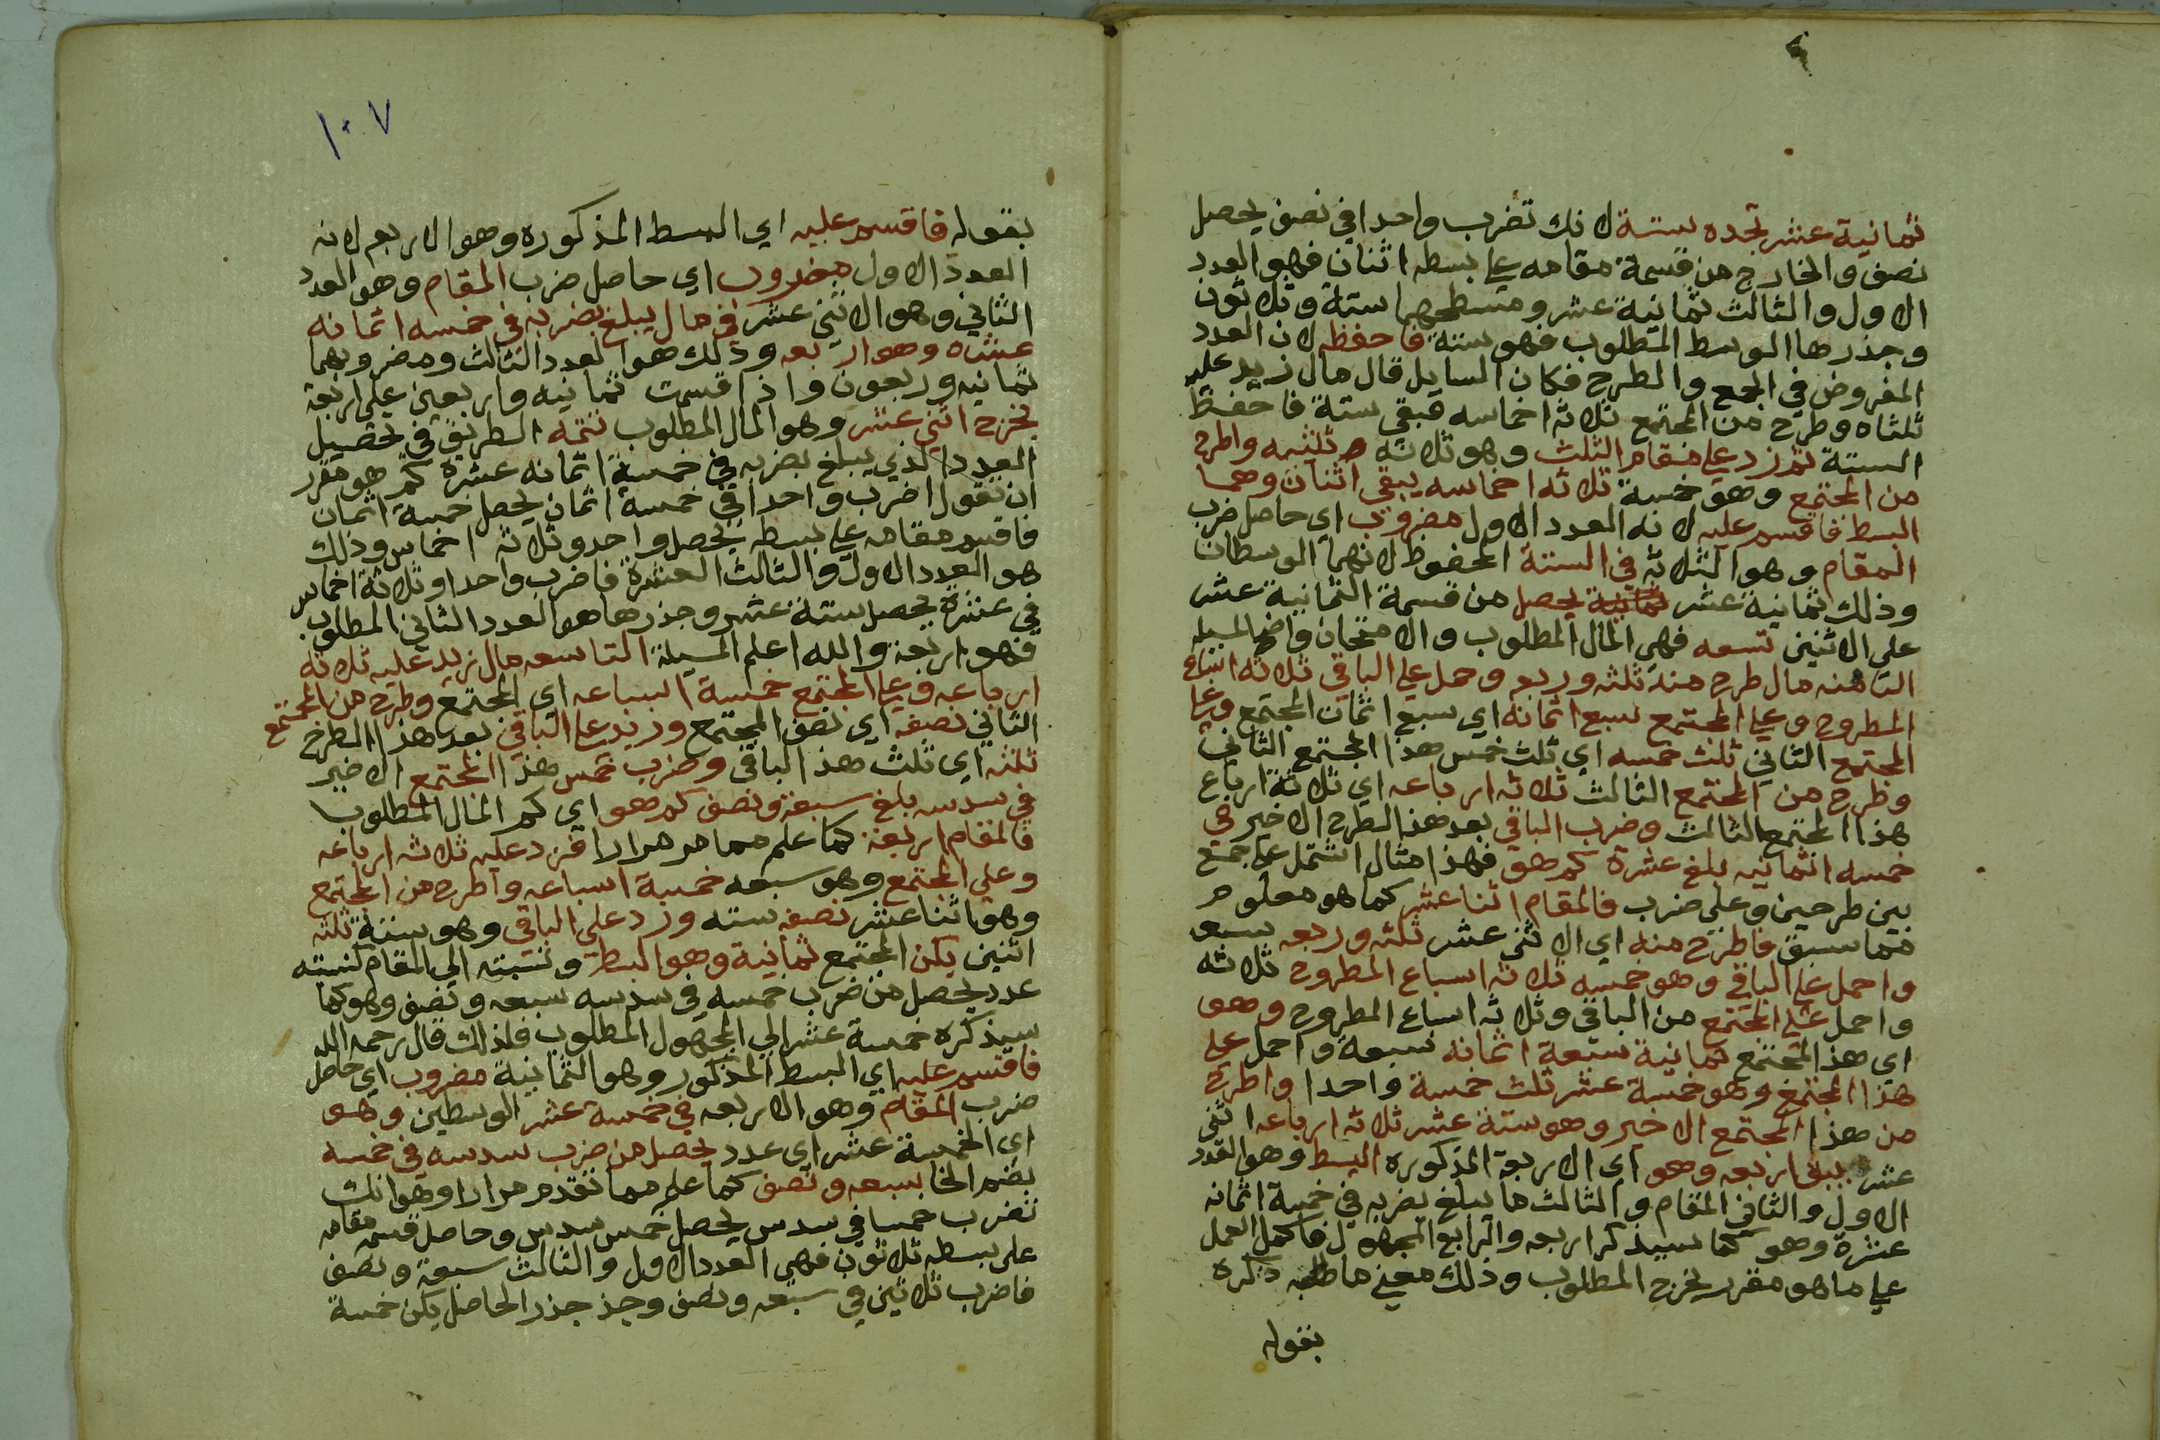 ثمانية عشر تجده ستة لانك تضرب واحدا في نصف يحصل
نصف والخارج من قسمة مقامه علي بسطه اثنان فهو العدد
الاول والثالث ثمانية عشر ومسطحهما ستة وثلاثون
وجذرها الوسط المطلوب فهو ستة فاحفظه لان العدد
المفروض في الجمع والطرح فكان السايل قال مال زيد عليه
ثلثاه وطرح من المجتمع ثلاثة اخماسه فبقي ستة فاحفظ
الستة ثم زد علي مقام الثلث وهو ثلاثة ثلثيه واطرح
من المجتمع وهو خمسة ثلاثة اخماسه يبقي اثنان وهما
البسط فاقسم عليه لانه العدد الاول مضروب اي حاصل ضرب
المقام وهو الثلاثة في الستة المحفوظ لانهما الوسطان
وذلك ثمانية عشر ثمانية يحصل من قسمة الثمانية عشر
علي الاثنين تسعه فهي المال المطلوب والامتحان واضح المسيله
الثامنه مال طرح منه ثلثه وربعه وحمل علي الباقي ثلاثة اسباع
المطروح وعلي المجتمع سبع اثمانه اي سبع اثمان المجتمع وعلي
المجتمع الثاني ثلث خمسه اي ثلث خمس هذا المجتمع الثاني
وطرح من المجتمع الثالث ثلاثة ارباعه اي ثلاثة ارباع
هذا المجتمع الثالث وضرب الباقي بعد هذا الطرح الاخير في
خمسه اثمانيه بلغ عشرة كم هو فهذا مثال اشتمل علي جمع
بين طرحين وعلي ضرب فالمقام اثنا عشر كما هو معلوم
مما سبق فاطرح منه اي الاثني عشر ثلثه وربعه سبعه
واحمل علي الباقي وهو خمسه ثلاثة اسباع المطروح ثلاثه
واحمل علي المجتمع من الباقي وثلاثة اسباع المطروح وهو
اي هذا المجتمع ثمانية سبعة اثمانه سبعة واحمل علي
هذا المجتمع وهو خمسة عشر ثلث خمسة واحدا واطرح
من هذا المجتمع الاخير وهو ستة عشر ثلاثة ارباعه اثني
عشر يبقي اربعه وهو اي الاربعة المذكوره البسط وهو العدد
الاول والثاني المقام والثالث ما يبلغ بضربه في خمسة اثمانه
عشرة وهو كما سيذكر اربعه والرابع المجهول فاكمل العمل
علي ما هو مقرر يخرج المطلوب وذلك معني ما ذكره
بقوله
١٠٧
بقوله فاقسم عليه اي البسط المذكوره وهو الاربعه لانه
العدد الاول مضروب اي حاصل ضرب المقام وهو العدد
الثاني وهو الاثني عشر في مال يبلغ بضربه في خمسه اثمانه
عشره وهو اربعه وذلك هو العدد الثالث ومضروبهما
ثمانيه وربعون واذا قسمت ثمانيه واربعين علي اربعة
يخرج اثني عشر وهو المال المطلوب تتمه الطريق في تحصيل
العدد الذي يبلغ بضربه في خمسة اثمانه عشرة كم هو مقرر
ان تقول اضرب واحدا في خمسة اثمان يحصل خمسة اثمان
فاقسم مقامه علي بسطه يحصل واحد وثلاثة اخماس وذلك
هو العدد الاول والثالث العشرة فاضرب واحدا وثلاثة اخماس
في عشرة يحصل ستة عشر وجذرها هو العدد الثاني المطلوب
فهو اربعة والله اعلم المسيلة التاسعه مال زيد عليه ثلاثه
ارباعه وعلي المجتمع خمسة اسباعه اي المجتمع وطرح من المجتمع
الثاني نصفه اي نصف المجتمع وزيد علي الباقي بعد هذا الطرح
ثلثه اي ثلث هذا الباقي وضرب خمس هذا المجتمع الاخير
في سدسه بلغ سبعة ونصف كم هو اي كم المال المطلوب
فالمقام اربعة كما علم مما مر مرارا فزد عليه ثلاثة ارباعه
وعلي المجتمع وهو سبعه خمسة اسباعه واطرح من المجتمع
وهو اثنا عشر نصفه سته وزد علي الباقي وهو ستة ثلثه
اثنين يكن المجتمع ثمانية وهو البسط ونسبته الي المقام كنسبته
عدد يحصل من ضرب خمسه في سدسه سبعه ونصف وهو كما
سيذكره خمسة عشر الي المجهول المطلوب فلذلك قال رحمه الله
فاقسم عليه اي البسط المذكور وهو الثمانية مضروب اي حاصل
ضرب المقام وهو الاربعه في خمسة عشر الوسطين وهو
اي الخمسة عشر اي عدد يحصل من ضرب سدسه في خمسه
بضم الخا سبعه ونصف كما علم مما تقدم مرارا وهو انك
تضرب خمسا في سدس يحصل خمس سدس وحاصل قسمة مقامه
علي بسطه ثلاثون فهي العدد الاول والثالث سبعة ونصف
فاضرب ثلاثين في سبعه ونصف وجذ جذر الحاصل يكن خمسة